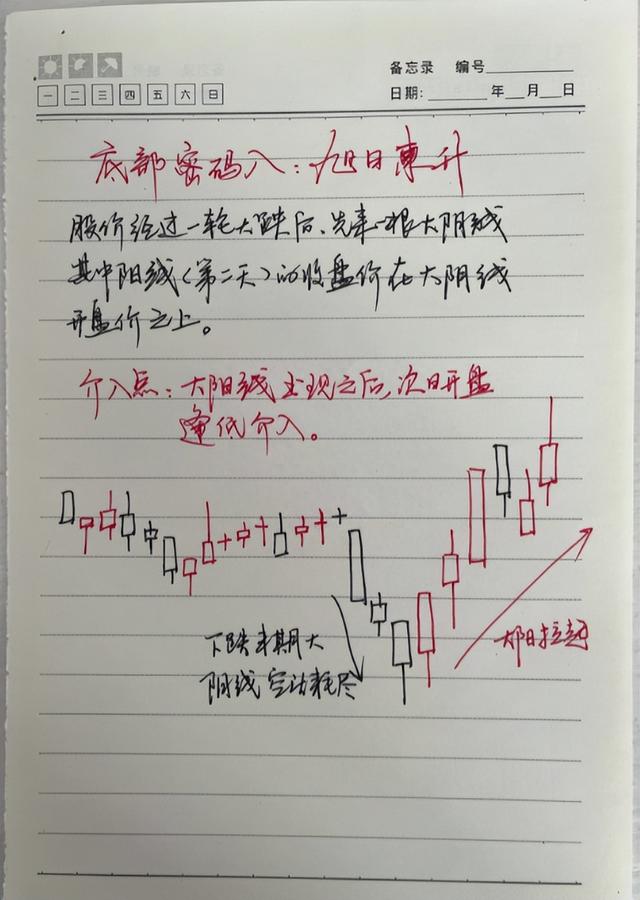 备忘录 编号
一 二 三 四 五 六 日
日期: 年 月 日
底部密码八：旭日東升
股价经过一轮大跌后、先来一根大阴线
其中阳线(第二天)的收盘价在大阴线
开盘价之上。
介入点：大阳线出现之后,次日开盘
逢低介入。
下跌末期大
阴线 空头耗尽
大阳拉起